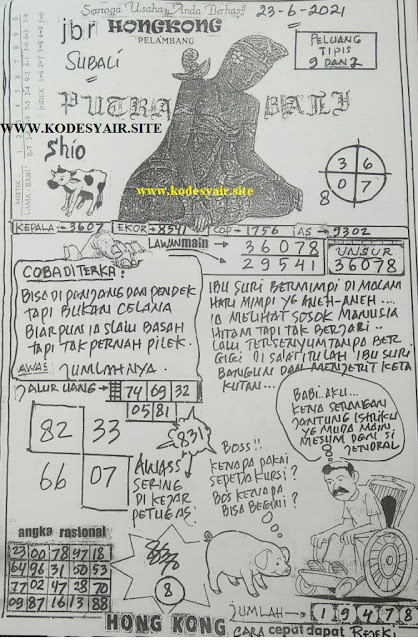 Semoga Usaha Anda Berhasil
23-6-2021
jbr HONGKONG
PELAMBANG
SUBALI
PELUANG
TIPIS
9 DAN 2
PUTRA BALI
WWW.KODESYAIR.SITE
Shio
www.kodesyair.site
3 6
0 7
8
KEPALA → 3607
EKOR → 8541
COP → 1756
AS → 9302
LAWAN main
36078
29541
UNSUR
36078
COBA DITERKA:
BISA DI PANJANG DAN PENDEK
TAPI BUKAN CELANA
BIARPUN IA SLALU BASAH
TAPI TAK PERNAH PILEK.
AWAS JUMLAHNYA.
IBU SURI BERMIMPI DI MALAM
HARI MIMPI YG ANEH-ANEH....
IA MELIHAT SOSOK MANUSIA
HITAM TAPI TAK BERJARI..
LALU TERSENYUM TANPA BER
GIGI DI SAAT ITULAH IBU SURI
BANGUN DAN MENJERIT KETA
KUTAN...
JALUR UANG →
74 69 32
05 81
82 33
66 07
831
AWASS
SERING
DI KEJAR
PETUGAS.
BOSS!!
KENAPA PAKAI
SEPEDA KURSI?
BOS KENAPA
BISA BEGINI?
BABI..AKU...
KENA SERANGAN
JANTUNG ISTRIKU
YG MUDA MAIN
MESUM DGN SI
JENDRAL
angka rasional
23 00 78 47 18
64 96 31 50 53
77 02 47 28 70
09 87 16 13 88
8
HONG KONG
JUMLAH → 1 9 4 7 8
CARA cepat dapat REJEKI